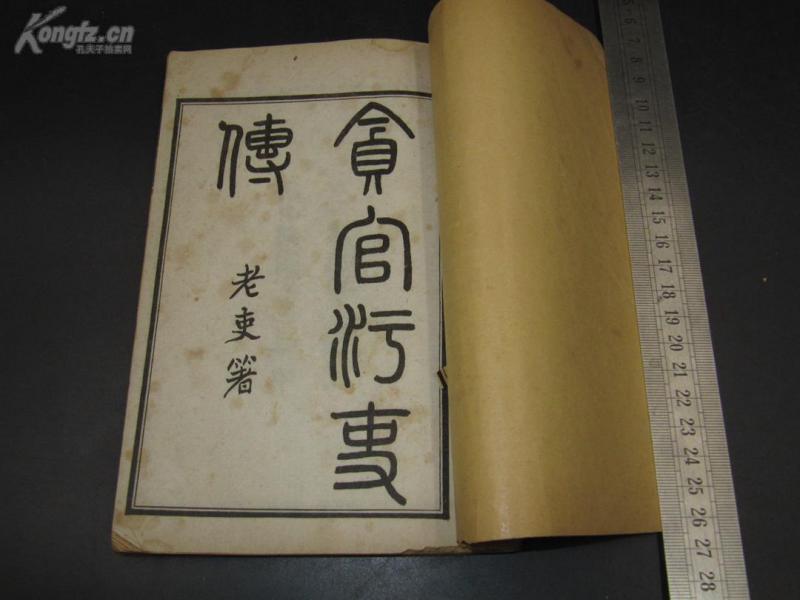 Kongfz.cn
孔夫子拍卖网
貪官污吏
傳
老吏箸
5
6
7
8
9
10
11
12
13
14
15
16
17
18
19
20
21
22
23
24
25
26
27
28